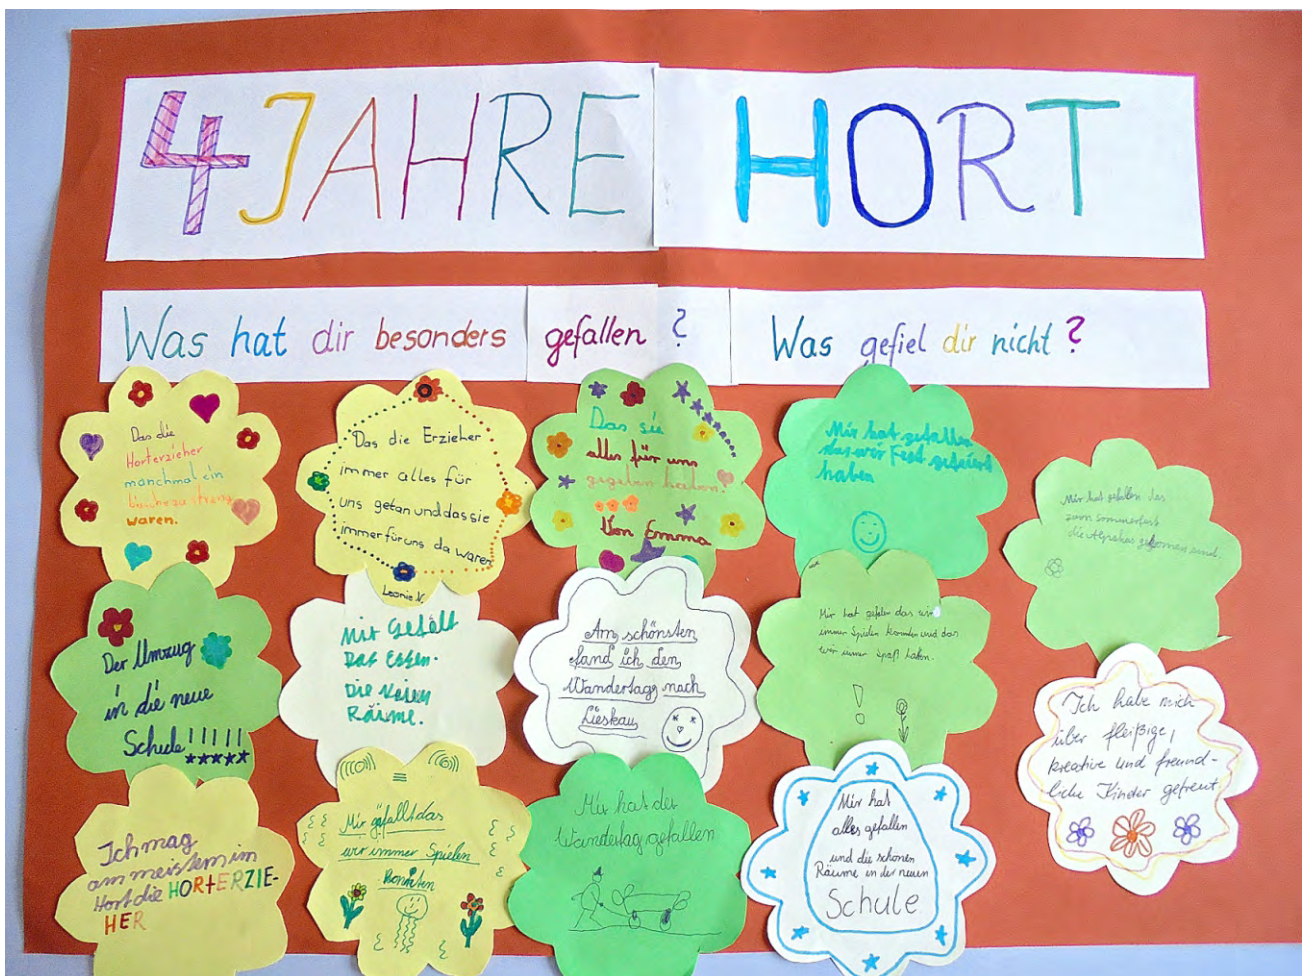 4 JAHRE HORT
Was hat dir besonders gefallen ? Was gefiel dir nicht ?
Das die
Horterzieher
manchmal ein
waren.
Das die Erzieher
immer alles für
uns getan und das sie
immer für uns da waren
Leonie N.
Das sie
alles für uns
gegeben haben.
Von Emma
Mir hat gefallen
das wir Fest gefeiert
haben
Mir hat gefallen das
zum Sommerfest
die Alpakas gekomen sind.
Der Umzug
in die neue
Schule!!!!!
Mir Gefällt
Das Essen.
Die Neuen
Räume.
Am schönsten
fand ich den
Wandertag nach
Lieskau
Mir hat gefalen das wir
immer Spielen konnten und das
wir immer Spaß haben.
!
Ich habe mich
über fleißige,
kreative und freund-
liche Kinder gefreut
Ich mag
am meisten im
Hort die HORTERZIE-
HER
Mir gefällt das
wir immer Spielen
konnten
Mir hat der
Wandertag gefallen
Mir hat
alles gefallen
und die schönen
Räume in der neuen
Schule